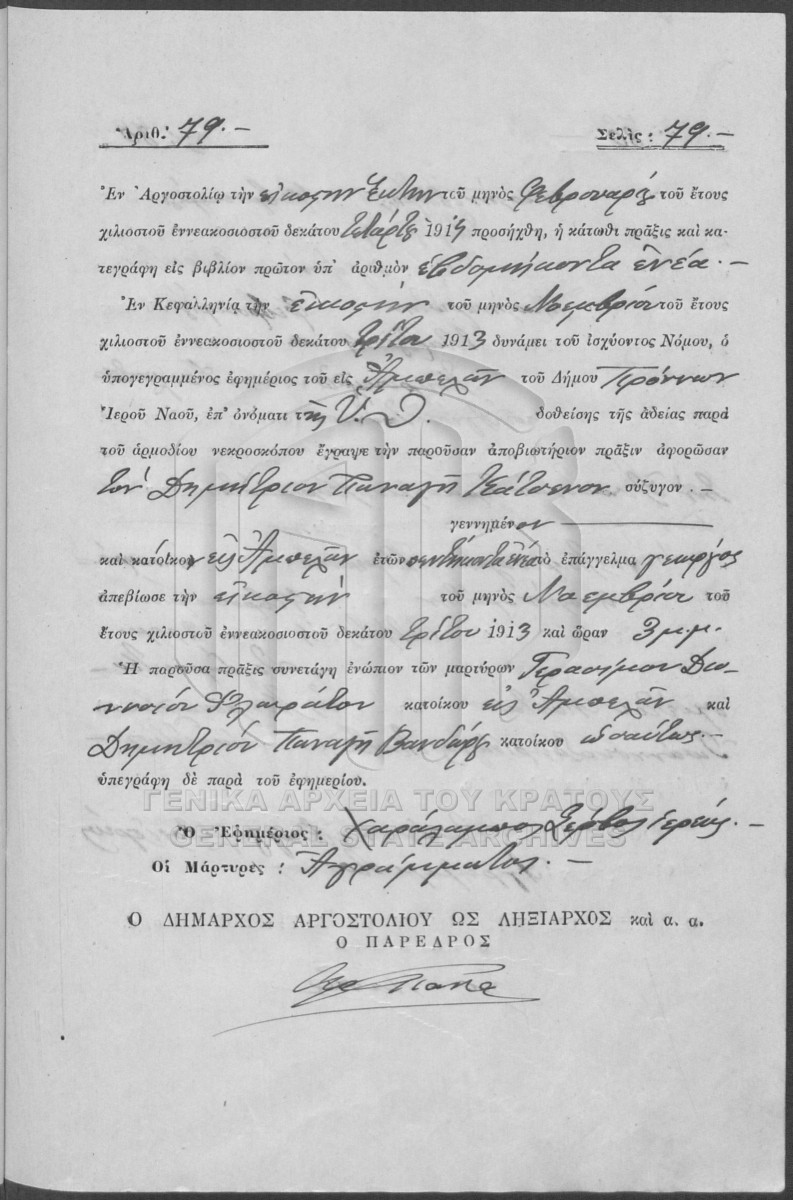 Ἀριθ. 79.— Σελὶς: 79.—
Ἐν Ἀργοστολίῳ τὴν εἰκοστὴν ἕκτην τοῦ μηνὸς Φεβρουαρίου τοῦ ἔτους
χιλιοστοῦ ἐννεακοσιοστοῦ δεκάτου τετάρτου 1914 προσήχθη, ἡ κάτωθι πρᾶξις καὶ κα-
τεγράφη εἰς βιβλίον πρῶτον ὑπ' ἀριθμὸν ἑβδομήκοντα ἐνέα.—
Ἐν Κεφαλληνίᾳ τὴν εἰκοστὴν τοῦ μηνὸς Νοεμβρίου τοῦ ἔτους
χιλιοστοῦ ἐννεακοσιοστοῦ δεκάτου τρίτου 1913 δυνάμει τοῦ ἰσχύοντος Νόμου, ὁ
ὑπογεγραμμένος ἐφημέριος τοῦ εἰς Ἀμπελᾶν τοῦ Δήμου Πρόννων
Ἱεροῦ Ναοῦ, ἐπ' ὀνόματι τῆς Υ.Θ. δοθείσης τῆς ἀδείας παρὰ
τοῦ ἁρμοδίου νεκροσκόπου ἔγραψε τὴν παροῦσαν ἀποβιωτήριον πρᾶξιν ἀφορῶσαν
τὸν Δημήτριον Παναγῆ σύζυγον.—
γεννημένον
καὶ κατοίκον εἰς Ἀμπελᾶν ἐτῶν πεντήκοντα ἐνέα τὸ ἐπάγγελμα γεωργὸς
ἀπεβίωσε τὴν εἰκοστὴν τοῦ μηνὸς Νοεμβρίου τοῦ
ἔτους χιλιοστοῦ ἐννεακοσιοστοῦ δεκάτου τρίτου 1913 καὶ ὥραν 3 μ.μ.
Ἡ παροῦσα πρᾶξις συνετάγη ἐνώπιον τῶν μαρτύρων Γερασίμου Διο-
νυσίου κατοίκου εἰς Ἀμπελᾶν καὶ
Δημητρίου Παναγῆ Βανδώρου κατοίκου ὡσαύτως.—
ὑπεγράφη δὲ παρὰ τοῦ ἐφημερίου.
ΓΕΝΙΚΑ ΑΡΧΕΙΑ ΤΟΥ ΚΡΑΤΟΥΣ
Ὁ Ἐφημέριος: Χαράλαμπος Σέρβος ἱερεύς.—
GENERAL STATE ARCHIVES
Οἱ Μάρτυρες: Ἀγράμματοι.—
Ο ΔΗΜΑΡΧΟΣ ΑΡΓΟΣΤΟΛΙΟΥ ΩΣ ΛΗΞΙΑΡΧΟΣ καὶ α. α.
Ο ΠΑΡΕΔΡΟΣ